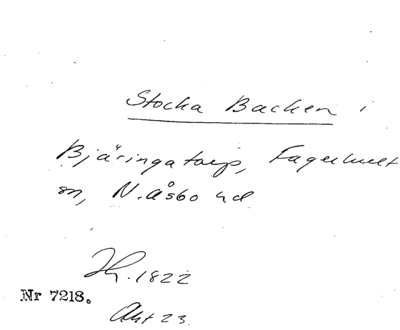 Stocka Backen i
Bjäringatorp, Fagerhult
sn, N. Åsbo hd
Jh. 1822
Nr 7218.
Akt 23.